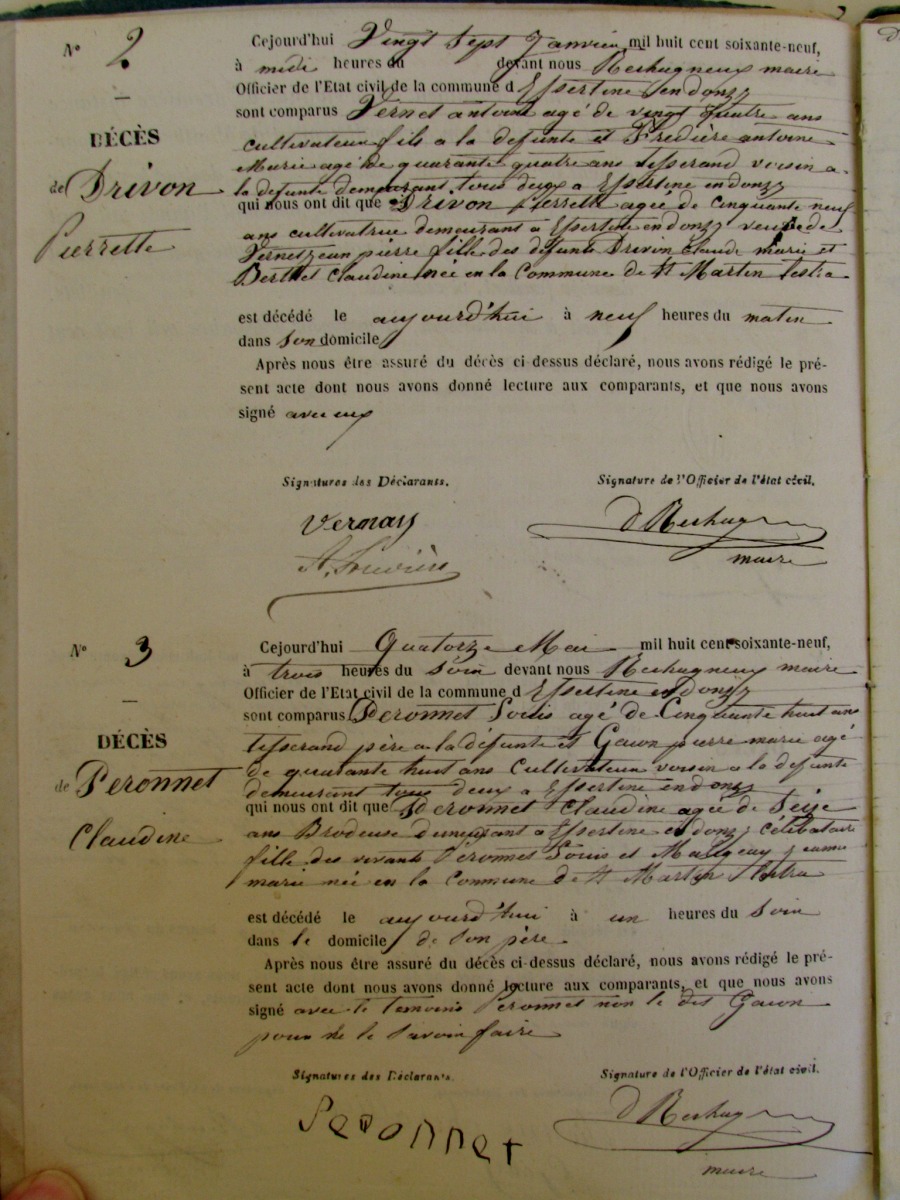 N° 2
Cejourd'hui Vingt Sept Janvier mil huit cent soixante-neuf,
à midi heures du devant nous Rechagneux maire
Officier de l'Etat civil de la commune d Essertine en donzy
sont comparus Vernet antoine agé de vingt quatre ans
cultivateur fils a la defunte et Fredière antoine
Marie agé de quarante quatre ans tisserand voisin a
la defunte demeurant tous deux a Essertine en donzy
qui nous ont dit que Drivon pierrette agée de Cinquante neuf
ans cultivatrice demeurant a Essertine en donzy veuve de
Vernet jean pierre fille des défunts Drivon Claude marie et
Berthet Claudine née en la Commune de St Martin Lestra
DÉCÈS
de Drivon
Pierrette
est décédé le aujourd'hui à neuf heures du matin
dans Son domicile
Après nous être assuré du décès ci-dessus déclaré, nous avons rédigé le pré-
sent acte dont nous avons donné lecture aux comparants, et que nous avons
signé avec eux
Signatures des Déclarants.
Signature de l'Officier de l'état civil.
Vernay
D Rechag
maire
N° 3
Cejourd'hui Quatorze Mai mil huit cent soixante-neuf,
à trois heures du Soir devant nous Rechagneux maire
Officier de l'Etat civil de la commune d Essertine en donzy
sont comparus Peronnet Louis agé de Cinquante huit ans
tisserand père a la défunte et Gawon pierre marie agé
de quarante huit ans Cultivateur voisin a la defunte
demeurant tous deux a Essertine en donzy
qui nous ont dit que Peronnet Claudine agée de Seize
ans Brodeuse demeurant a Essertine en donzy célibataire
fille des vivants Peronnet Louis et jeanne
marie née en la Commune de St Martin Lestra
DÉCÈS
de Peronnet
Claudine
est décédé le aujourd'hui à un heures du Soir
dans le domicile de Son père
Après nous être assuré du décès ci-dessus déclaré, nous avons rédigé le pré-
sent acte dont nous avons donné lecture aux comparants, et que nous avons
signé avec le temoins Peronnet non le dit Gawon
pour ne le Savoir faire
Signatures des Déclarants.
Signature de l'Officier de l'état civil.
Peronnet
D Rechag
maire